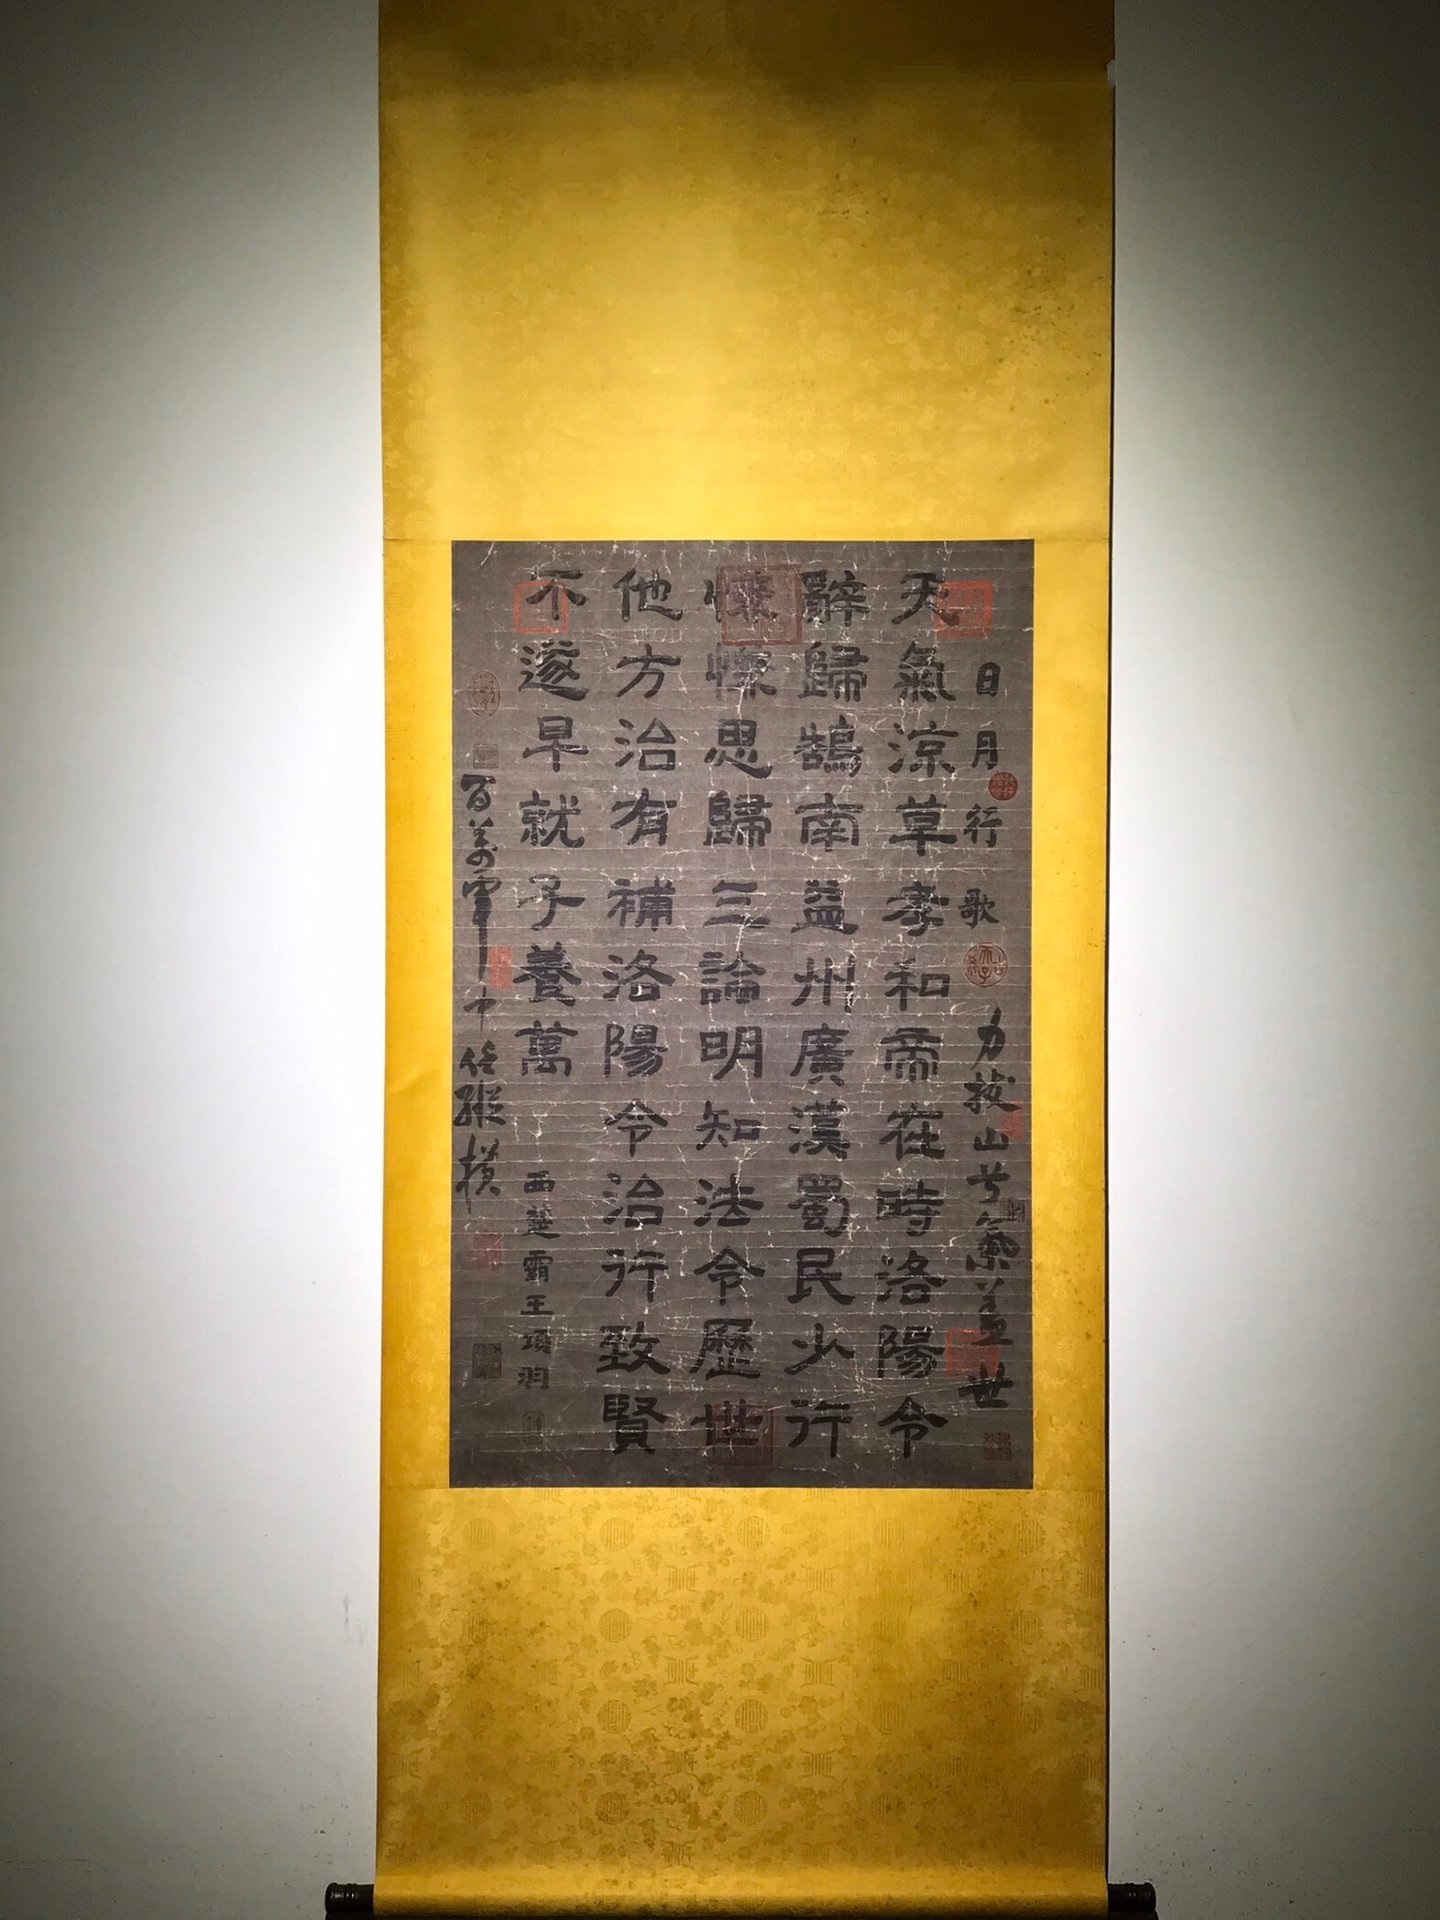 日月行歌
力拔山兮氣蓋世
天氣涼草孝和帝在時洛陽令
辭歸鵠南益州廣漢蜀民少行
懷懷思歸三論明知法令歷世
他方治有補洛陽令治行致賢
不遂早就子養萬
西楚霸王項羽
百萬軍中任縱橫